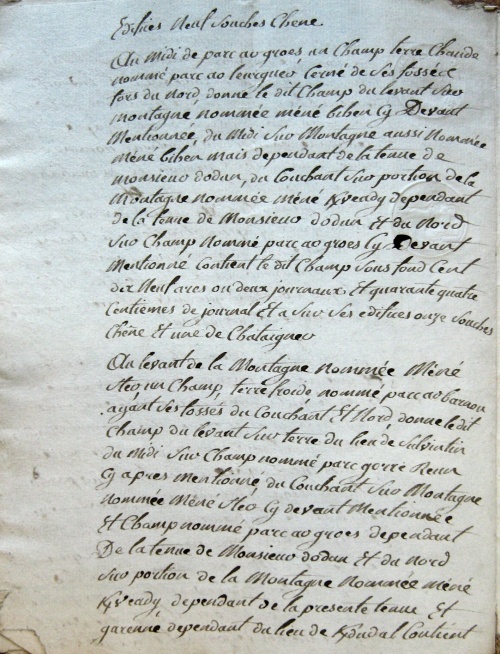 Edifices Neuf Souches Chene.
Au midi de parc ao groes un Champ terre Chaude
nommé parc ao leurgueo cerné de ses fossés
fors du Nord donne le dit Champ du levant Sur
montagne nommée méné biben Cy Devant
Mentionnée, du Midi Sur Montagne aussi Nommée
méné biben mais dependant de la tenue de
monsieur dodun, du Couchant Sur portion de la
Montagne nommée Méné Kveady dependant
de la tenue de Monsieur dodun Et du Nord
Sur Champ Nommé parc ao groes Cy Devant
Mentionné Contient le dit Champ Sous fond Cent
dix Neuf ares ou deux journaux Et quarante quatre
Centiemes de journal Et a Sur Ses edifices onze Souches
Chêne Et une de Chataigner
Au levant de la Montagne nommée Méné
un Champ, terre froide nommé parc ao barnou
ayant Ses fossés du Couchant Et Nord, donne le dit
Champ du levant Sur terre du lieu de
du Midi Sur Champ nommé parc gorre
Cy apres Mentionné du Couchant Sur Montagne
nommée Méné Cy devant Mentionnée
Et Champ nommé parc ao groes dependant
De la tenue de Monsieur dodun Et du Nord
Sur portion de la Montagne Nommée méné
Kveady dependant de la presente tenue Et
garenne dependant du lieu de Contient